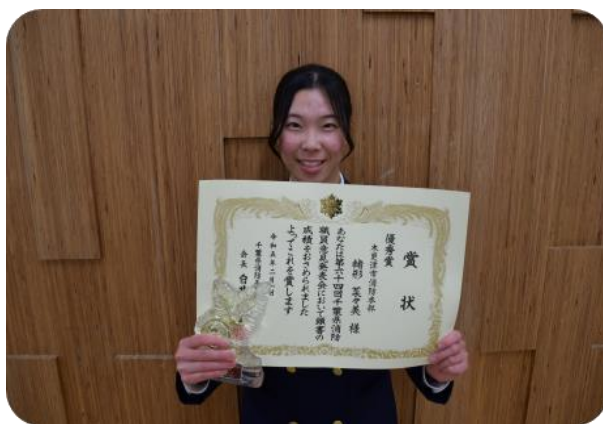 賞状
優秀賞
木更津市消防本部
緒形 菜々美 様
あなたは第六十四回千葉県消防
職員意見発表会において頭書の
成績をおさめられました
よってこれを賞します
令和五年二月
千葉県消防
会長